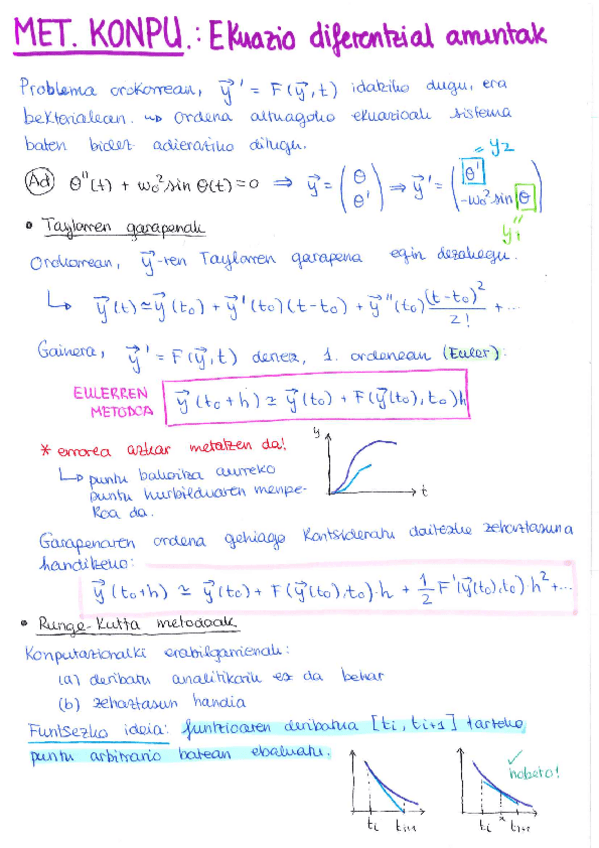 MET. KONPU.: Ekuazio diferentzial arruntak
Problema orokorrean, y⃗' = F(y⃗,t) idatziko dugu, era
bektorialean. ⇝ Ordena altuagoko ekuazioak sistema
baten bidez adieraziko ditugu.
= y2
Ad θ''(t) + ω0² sin θ(t) = 0 ⇒ y⃗ = (θ θ') ⇒ y⃗' = (θ' -ω0² sin θ)
y1
• Taylorren garapenak
Orokorrean, y⃗-ren Taylorren garapena egin dezakegu.
↳ y⃗(t) ≃ y⃗(t0) + y⃗'(t0)(t-t0) + y⃗''(t0) (t-t0)²/2! + ...
Gainera, y⃗' = F(y⃗,t) denez, 1. ordenean (Euler):
EULERREN
METODOA
y⃗(t0+h) ≃ y⃗(t0) + F(y⃗(t0),t0)h
* errorea azkar metatzen da!
↳ puntu bakoitza aurreko
puntu hurbilduaren menpe-
koa da.
y
t
Garapenaren ordena gehiago kontsideratu daitezke zehaztasuna
handitzeko:
y⃗(t0+h) ≃ y⃗(t0) + F(y⃗(t0),t0)·h + 1/2 F'(y⃗(t0),t0)·h² + ...
• Runge-Kutta metodoak
Konputazionalki erabilgarrienak:
(a) deribatu analitikorik ez da behar
(b) zehaztasun handia
Funtsezko ideia: funtzioaren deribatua [ti, ti+1] tarteko
puntu arbitrario batean ebaluatu.
✓ hobeto!
ti ti+1
ti x ti+1